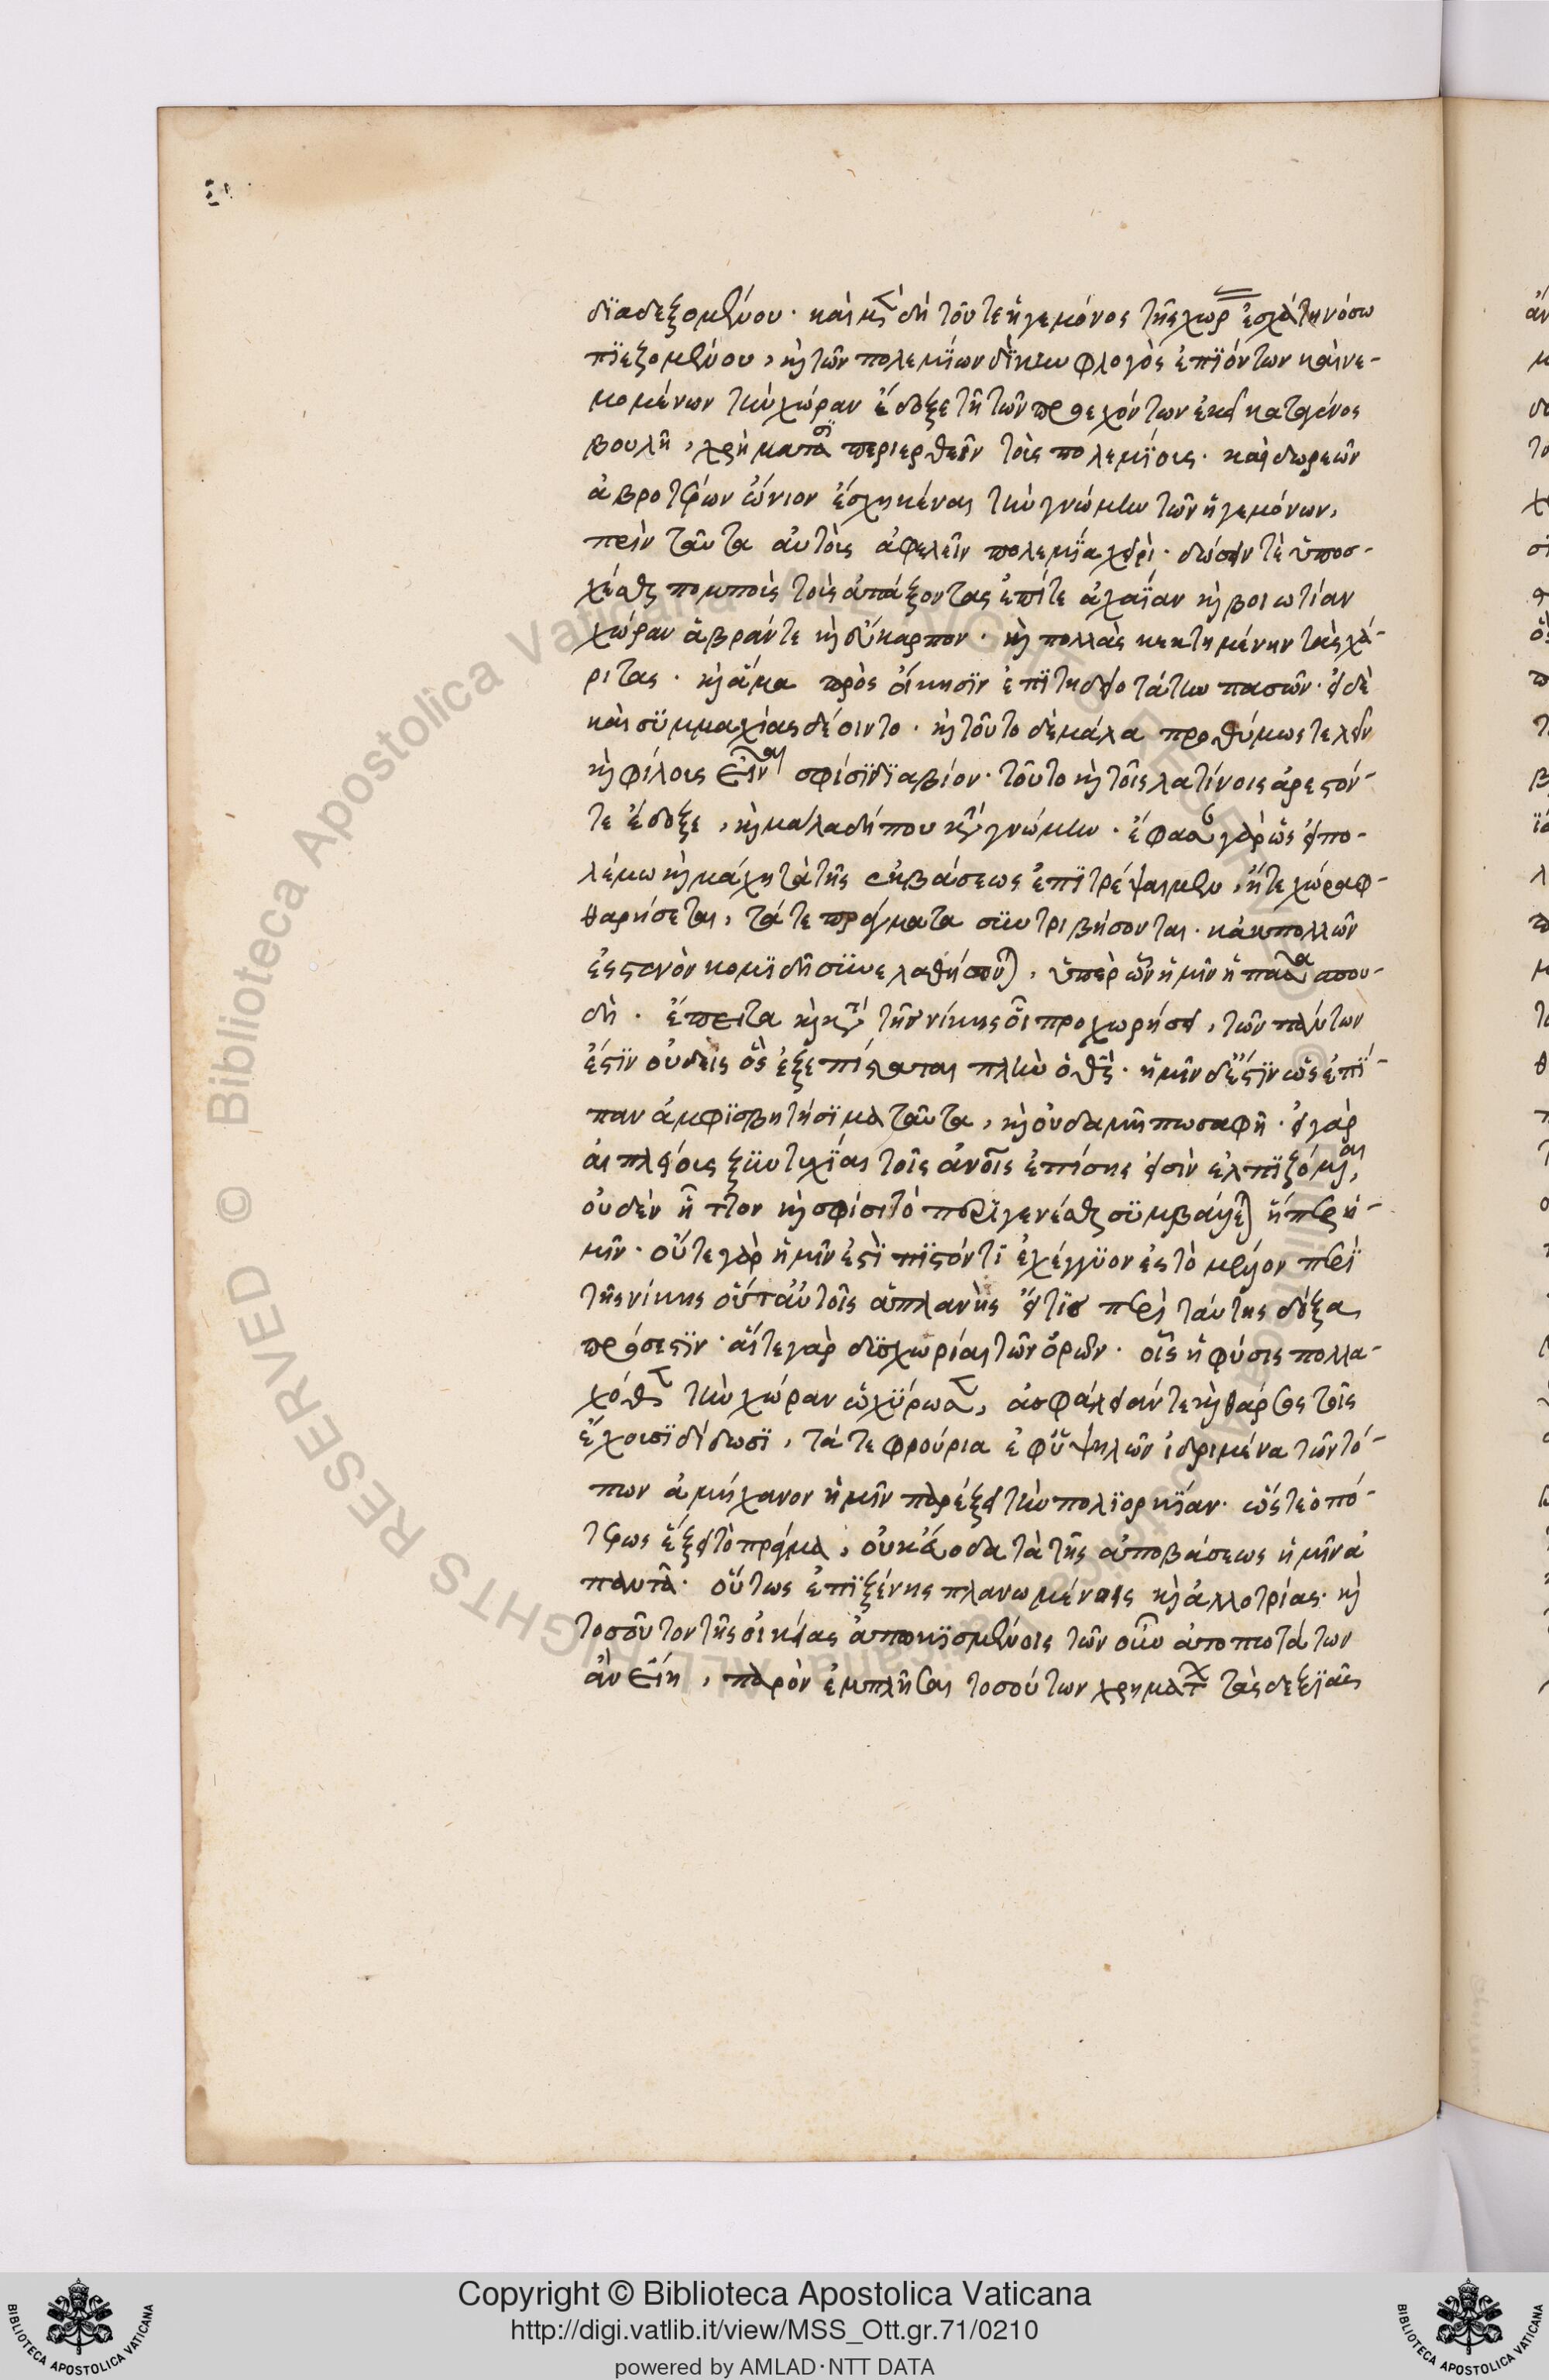 διαδεξομένου. καὶ μὲν δὴ τοῦ τε ἡγεμόνος τῆς χώρας ἐσχάτῃ νόσω
πϊεζομένου, καὶ τῶν πολεμίων δίκην φλογὸς ἐπϊόντων καὶ νε-
μομένων τὴν χώραν ἔδοξε τῇ τῶν προεχόντων ἐκεῖ κατὰ γένος
βουλῇ, χρήμασι περιελθεῖν τοὺς πολεμίους. καὶ δωρεῶν
ἁβροτέρων ὤνιον ἐσχηκέναι τὴν γνώμην τῶν ἡγεμόνων,
πρὶν ταῦτα αὐτοὺς ἀφελεῖν πολεμία χειρὶ. δώσειν τὲ ὑποσ-
χέσθαι πομποὺς τοὺς ἀπάξοντας ἐπί τε ἀχαΐαν καὶ βοιωτίαν
χώραν ἁβράν τε καὶ εὔκαρπον. καὶ πολλὰς κεκτημένην τὰς χά-
ριτας. καὶ ἅμα πρὸς οἴκησϊν ἐπϊτηδειοτάτην πασῶν. εἰ δὲ
καὶ συμμαχίας δέοιντο. καὶ τοῦτο δὲ μάλα προθύμως τελεῖν
καὶ φίλους εἶναι σφίσϊ διαβίου. τοῦτο καὶ τοῖς λατίνοις ἀρεστόν
τε ἔδοξε, καὶ μάλα δήπου κατὰ γνώμην. ἔφασαν γὰρ ὡς εἰ πο-
λέμω καὶ μάχη τὰ τῆς ἐκβάσεως ἐπϊτρέψαιμεν, ἥ τε χώρα φ-
θαρήσεται, τά τε πράγματα συντριβήσονται. κἀκ πολλῶν
ἐς στενὸν κομϊδῆ συνελαθήσονται, ὑπὲρ ὧν ἡμῖν ἡ πᾶσα σπου-
δὴ. ἔπειτα καὶ κατὰ τὴν νίκης οἷ προχωρήσει, τῶν πάντων
ἐστϊν οὐδεὶς ὃς ἐξεπίσταται πλὴν ὁ θεὸς. ἡμῖν δ' ἐστϊν ὡς ἐπί
παν ἀμφϊσβητήσϊμα ταῦτα, καὶ οὐδαμῆ πω σαφῆ. εἰ γὰρ
αἱ πλείους ξυντυχίαι τοῖς ἀνοις ἐπίσης εἰσὶν ἐλπιζόμεναι,
οὐδὲν ἧττον καὶ σφίσι τὸ περιγενέσθαι συμβαίνει ἤπερ ἡ-
μῖν. οὔτε γὰρ ἡμῖν ἐστὶ πϊστόν τϊ ἐχέγγυον ἐς τὸ μεῖζον περὶ
τῆς νίκης οὔτ' αὐτοῖς ἀπλανὴς ἥτις περὶ ταύτης δόξα,
πρόσεστϊν. αἵ τε γὰρ δυσχωρίαι τῶν ὀρῶν. οἷς ἡ φύσις πολλα-
χόθεν τὴν χώραν ὠχύρωσεν, ἀσφάλειάν τε καὶ θάρσος τοῖς
ἔχουσϊ δίδωσϊ, τά τε φρούρια ἐφ' ὑψηλῶν ἱδρυμένα τῶν τό-
πων ἀμήχανον ἡμῖν παρέξει τὴν πολϊορκίαν. ὥστε ὁπο-
τέρως ἕξει τὸ πρᾶγμα, οὐκ εὔοδα τὰ τῆς ἀποβάσεως ἡμῖν ἁ
παντᾶ. οὕτως ἐπϊ ξένης πλανωμένοις καὶ ἀλλοτρίας. καὶ
τοσοῦτον τῆς οἰκείας ἀπωκισμένοις τῶν οὖν ἀτοπωτάτων
ἂν εἴη, παρὸν ἐμπλῆσαι τοσούτων χρημάτων τὰς δεξϊὰς